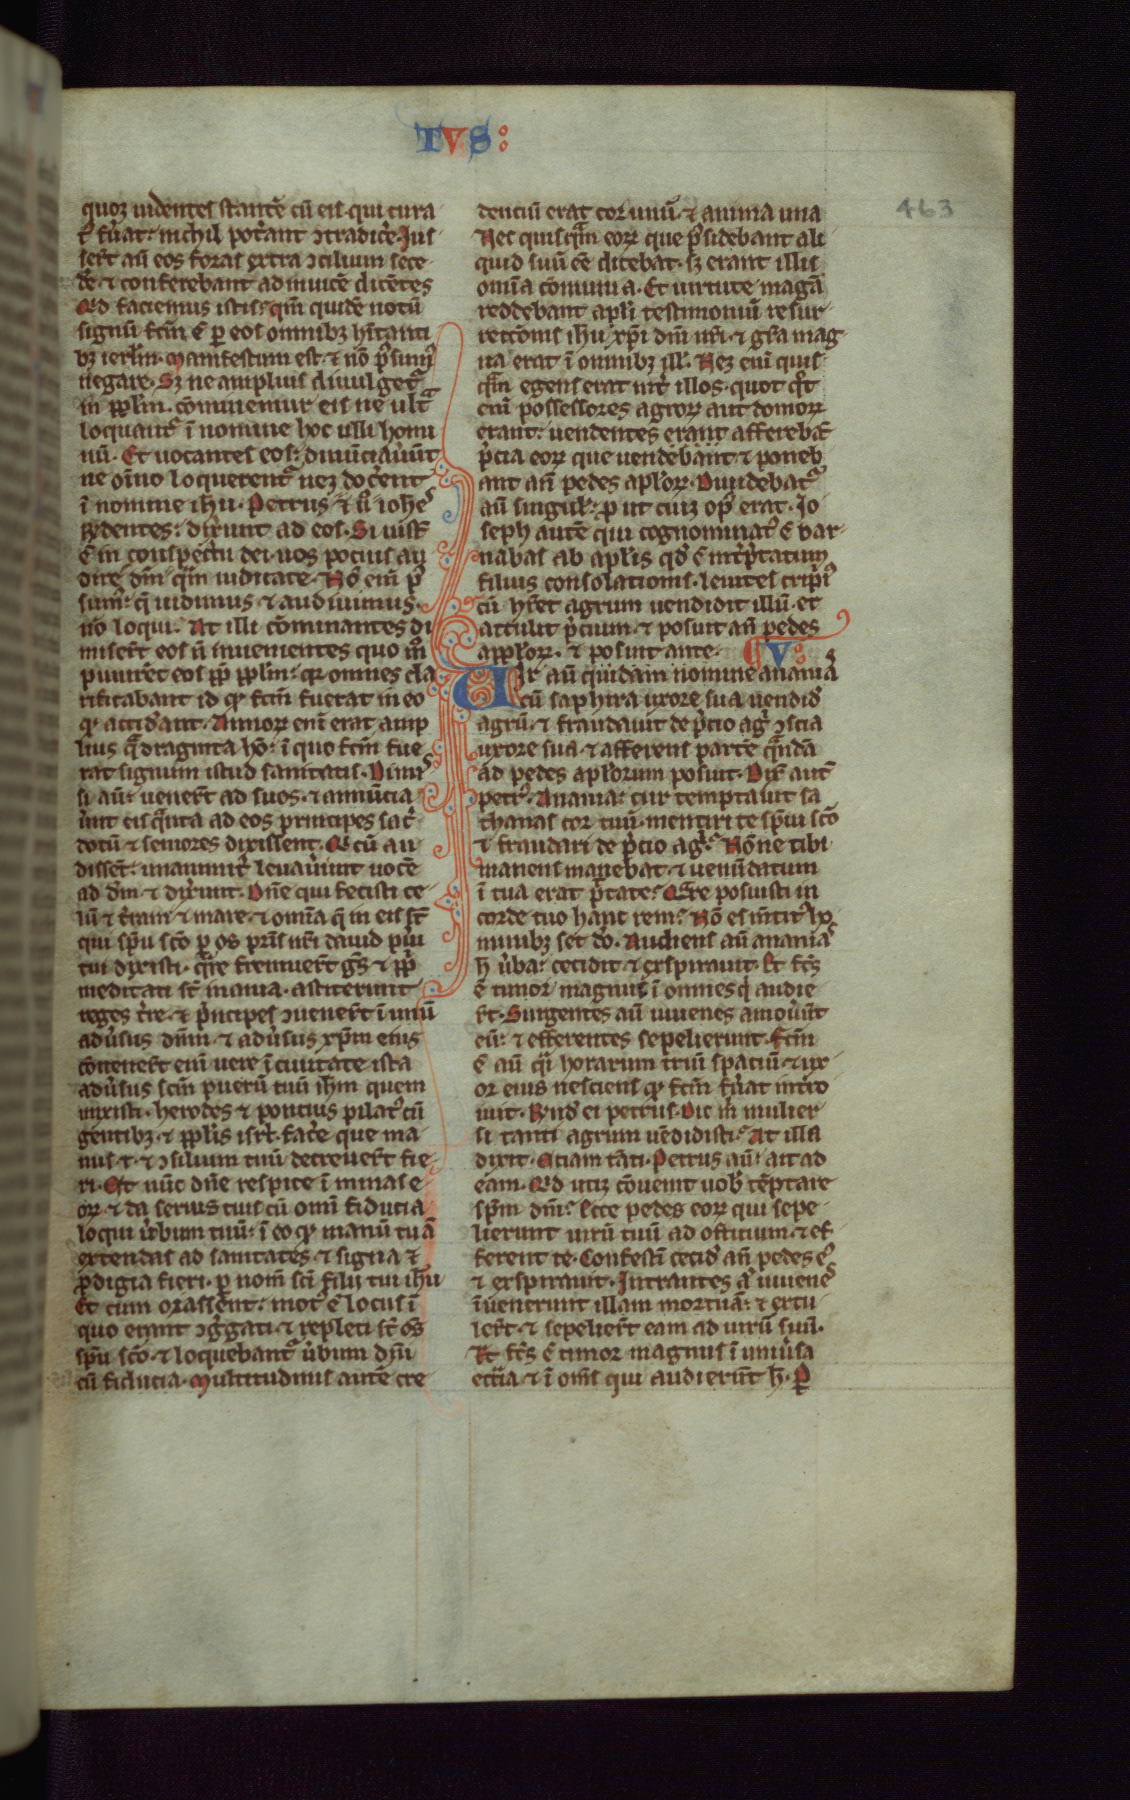 TVS:
463
quoꝫ uidentes stantē cū eis qui cura
t᷑ fu̾at: nichil pot̾ant ↄtradic̾e. Jus
ser̄t aū eos foras extra ↄcilium sece
de᷑ ⁊ conferebant ad inuicē dicētes
Qd faciemus istis? qm̄ quidē notū
signū fc̄m ē ꝑ eos omnibꝫ hītanti
bꝫ ierlm̄. Manifestum est. ⁊ nō p̾sum᷒
negare. Sꝫ ne amplius diuulget᷑
in pp̄lm. cōminemur eis ne ult᷑
loquant᷑ ī nomine hoc ulli homi
nū. Et uocantes eos: dinūciau̾unt
ne oīno loquerent᷑ neꝫ doc̾ent
ī nomine ihu. Petrus ⁊ u̾ iohēs
R̄dentes: dix̾unt ad eos. Si iust᷑
ē in conspectu dei. uos pocius au
dire dm̄ q̄m iudicate. Nō enī p̾
sum᷒ q̄ uidimus ⁊ audiuimus.
nō loqui. At illi cōminantes di
miser̄t eos n̄ inuenientes quo m̊
punirēt eos pp̄ pp̄lm: qr omnes cla
rificabant id qͩ fc̄m fuerat in eo
qͩ accid̾ant. Annoꝝ enī erat amp
lius q̄draginta hō: ī quo fc̄m fue
rat signum istud sanitatis. Dimis
si aū: uener̄t ad suos. ⁊ annūcia
u̾unt eis q̄nta ad eos principes sac᷑
dotū ⁊ seniores dixissent. Q̄ cū au
dissēt: unanimit᷑ leuau̾unt uocē
ad dm̄ ⁊ dix̾unt. Dn̄e qui fecisti ce
lū ⁊ t̾ram ⁊ mare. ⁊ omīa q̄ in eis st̄
qui sp̄u sc̄o ꝑ os pr̄is nr̄i dauid pu̾i
tui dixisti. q̄re fremuer̄t gn̄s ⁊ pp̄li
meditati st̄ inania. astiterunt
reges t̾re. ⁊ p̾ncipes ↄuener̄t ī unū
adu̾sus dn̄m. ⁊ adu̾sus xp̄m eius
cōuener̄t enī uere ī ciuitate ista
adu̾sus sc̄m puerū tuū ihm̄ quem
unxisti. herodes ⁊ poncius pilat᷒ cū
gentibꝫ. ⁊ pp̄lis isrl̄. fac̾e que ma
nus .t. ⁊ ↄsilium tuū decreuer̄t fie
ri. Et nūc dn̄e respice ī minas e
oꝝ. ⁊ da seruis tuis cū omī fiducia
loqui u̾bum tuū: ī eo qͩ manū tuā
extendas ad sanitates ⁊ signa ⁊
ꝓdigia fieri. ꝑ nom̄ sc̄i filii tui ihu
Et cum orassent: mot᷒ ē locus ī
quo erant ↄg̾gati. ⁊ repleti st̄ oēs
sp̄u sc̄o. ⁊ loquebant᷑ u̾bum dn̄i
cū fiducia. Multitudinis autē cre
denciū erat cor unū. ⁊ anima una
Nec quisq̄m eoꝝ que p̾sidebant ali
quid suū eē dicebat. sꝫ erant illis
omīa cōmunia. Et uirtute magā
reddebant apl̄i testimoniū resur
rectōnis ihu xp̄i dn̄i nr̄i. ⁊ gr̄a mag
na erat ī omnibꝫ ill̄. Neꝫ enī quis
q̄m egens erat int᷑ illos. quot q̄t
enī possessores agroꝝ aut domoꝝ
erant: uendentes erant afferebāt
p̾cia eoꝝ que uendebant. ⁊ poneb
ant an̄ pedes apl̄oꝝ. Diuidebat᷑
aū singul̄: ꝓ ut cuiꝫ op᷒ erat. Jo
seph autē qui cognominat᷒ ē bar
nabas ab apl̄is qd̄ ē int̾p̾tatum
filius consolationis. leuites cip̾i᷒
cū hr̄et agrum uendidit illū. et
attulit p̾cium. ⁊ posuit an̄ pedes
appl̄oꝝ. ⁊ posuit ante. C V.
Uir aū quidam nomine ananiā
cū saphira uxore sua uendid̾
agrū. ⁊ fraudauit de p̾cio ag᷑ ↄscia
uxore sua. ⁊ afferens partē q̄ndā
ad pedes apl̄orum posuit. Dix̄ aut̄
petr᷒. Anania: cur temptauit sa
thanas cor tuū. mentiri te sp̄ui sc̄o
⁊ fraudari de p̾cio ag᷑? Nōne tibi
manens manebat. ⁊ uenūdatum
ī tua erat p̾tate? Q̄re posuisti in
corde tuo hanc rem? Nō es m̄tit᷒ ho
minibꝫ set do̾. Audiens aū ananias
h̄ u̾ba: cecidit ⁊ exspirauit. Et fc̄s
ē timor magnus ī omnes q̾ audie
r̄t. Surgentes aū iuuenes amou̾unt
eū: ⁊ efferentes sepelierunt. Fc̄m
ē aū q̄i horarum triū spaciū. ⁊ ux
or eius nesciens qͩ fc̄m fu̾at intro
iuit. R̄nd̾ ei petrus. Dic m̊ mulier
si tanti agrum uēdidisti? At illa
dixit. Etiam tāti. Petrus aū: ait ad
eam. Qd utiꝫ cōuenit uob̄ tēptare
sp̄m dn̄i? Ecce pedes eoꝝ qui sepe
lierunt uirū tuū ad ostium. ⁊ ef
ferent te. Confestī cecid̾ an̄ pedes e᷒
⁊ exspirauit. Intrantes a᷒ iuuenes
īuenerunt illam mortuā: ⁊ extu
ler̄t. ⁊ sepelier̄t eam ad uirū suū.
Et fc̄s ē timor magnus ī uniu̾sa
ecc̄ia ⁊ ī om̄s qui audierūt h̄. P̄